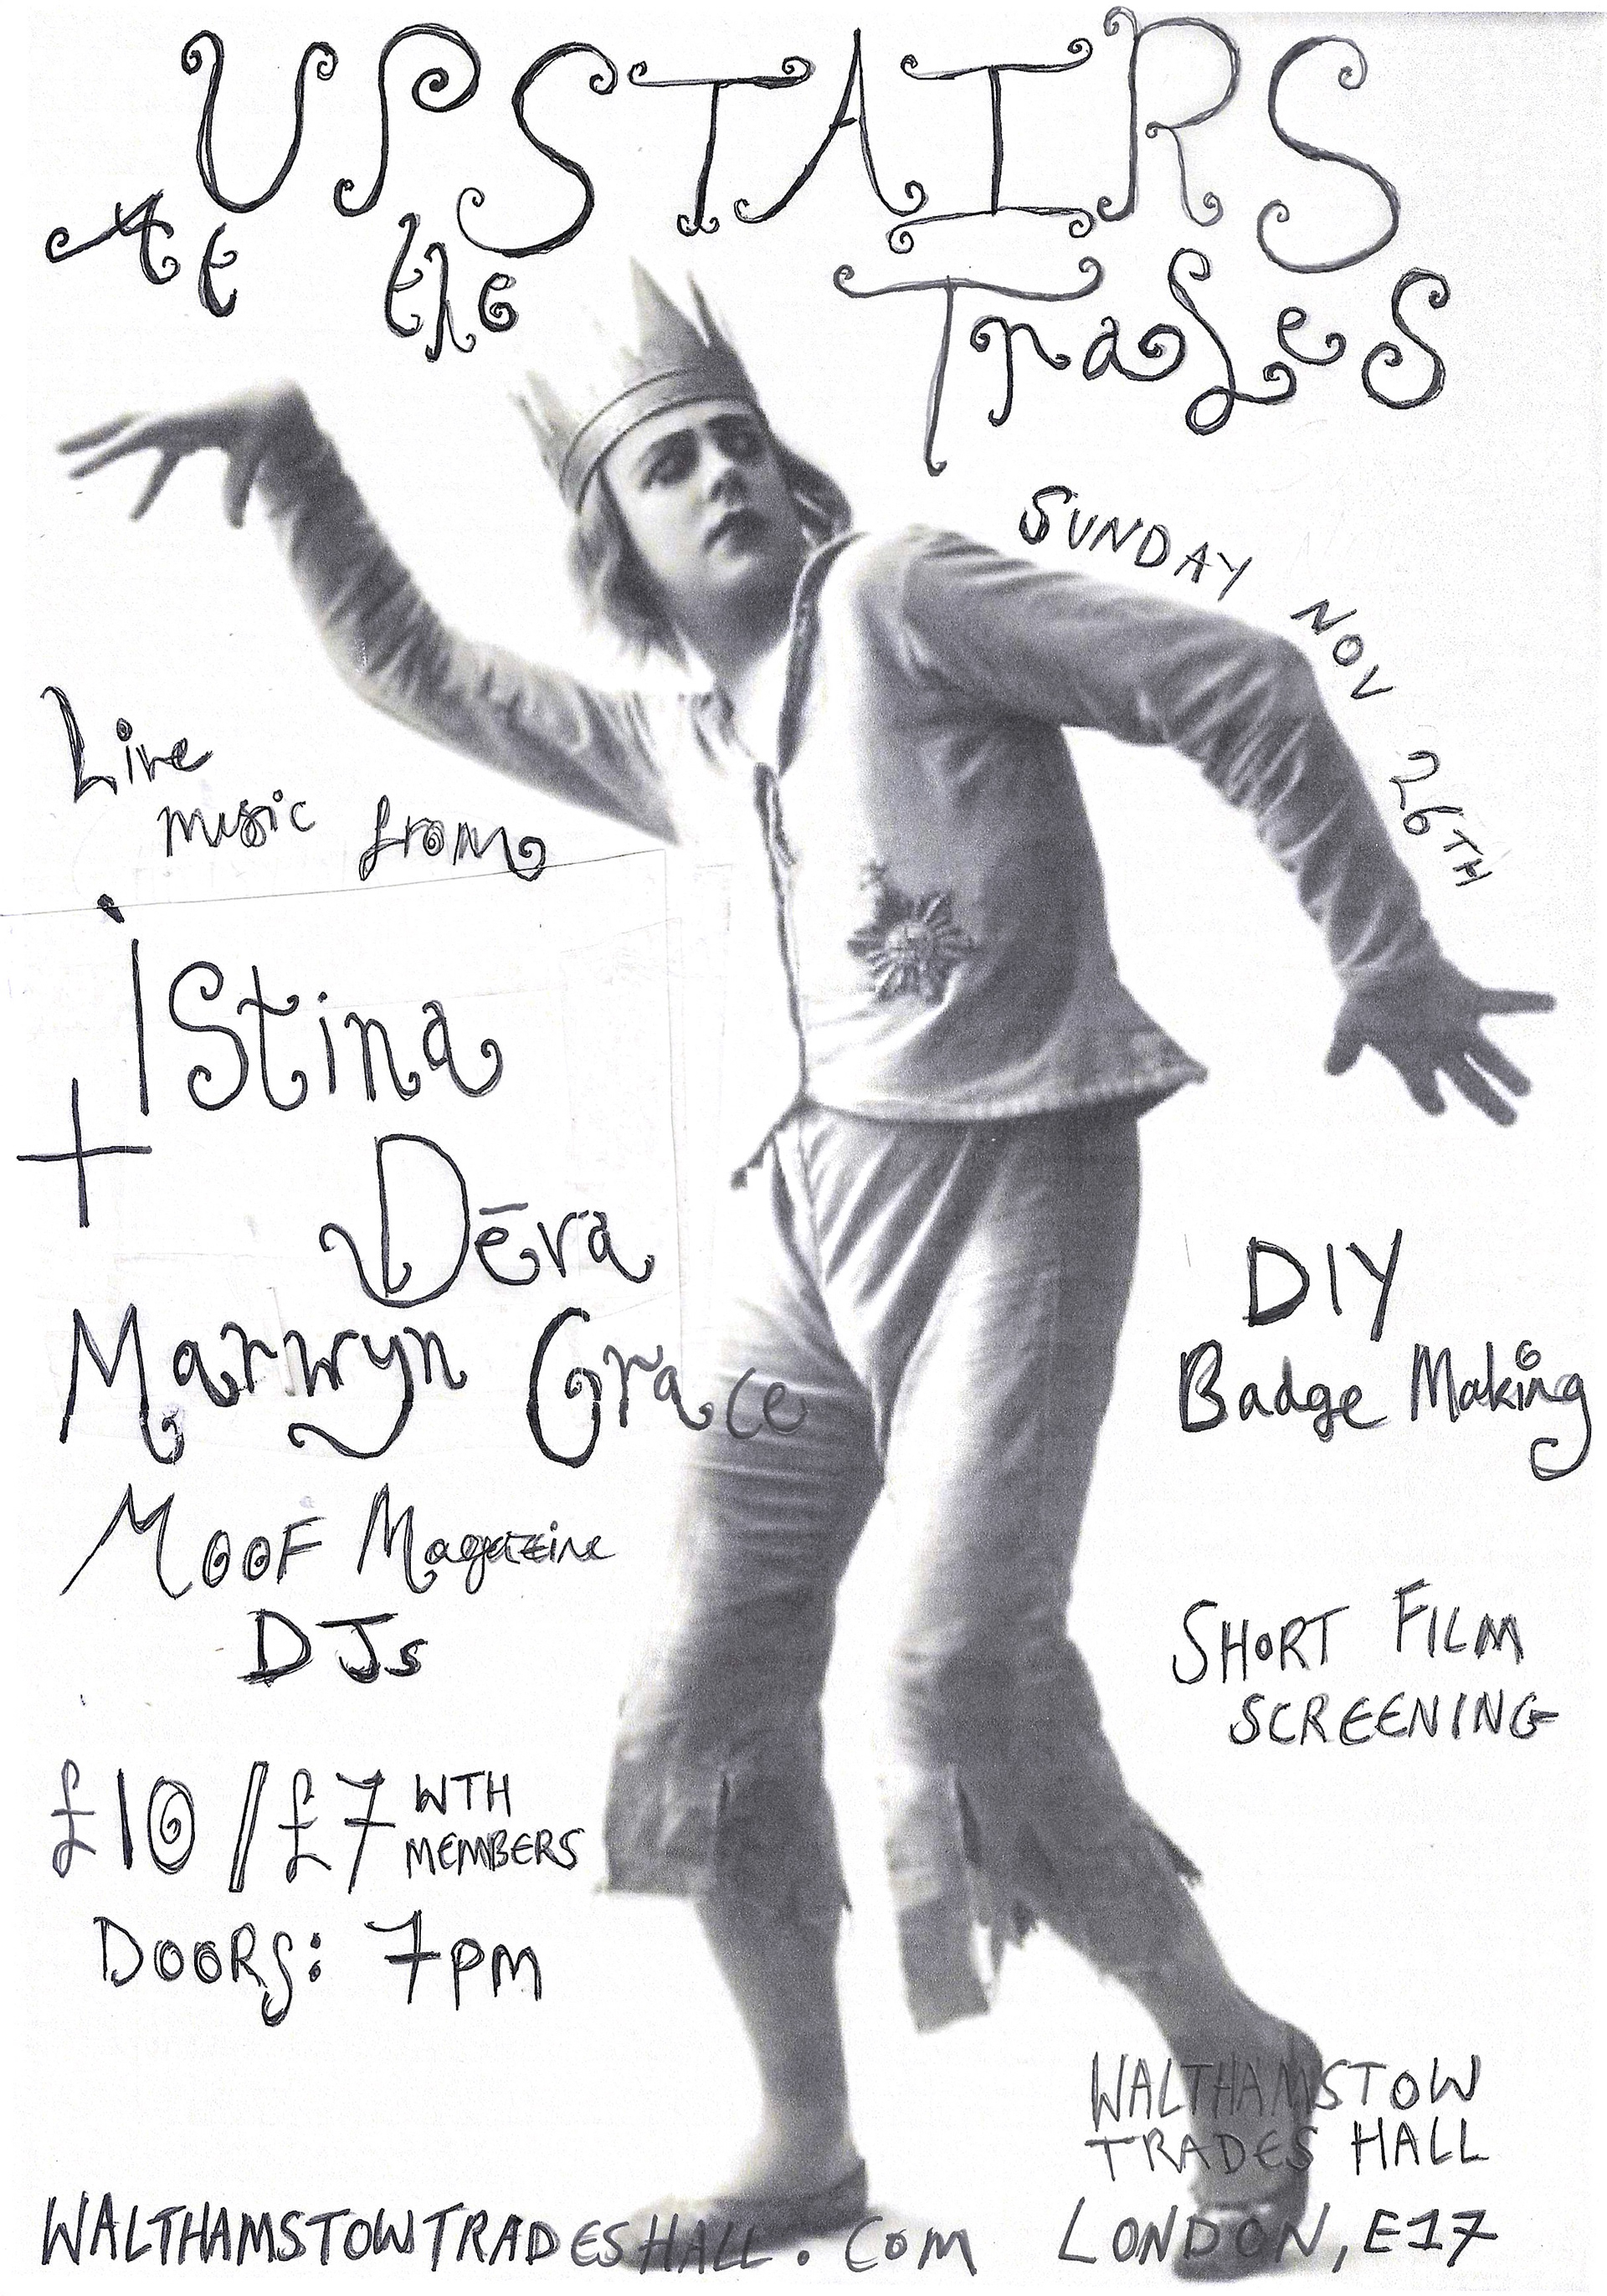 UPSTAIRS
At the
Trades
SUNDAY NOV 26TH
Live
music from
iStina
+ Dēva
Marwyn Grace
MOOF Magazine
DJs
£10 / £7 WTH
MEMBERS
DOORS: 7PM
DIY
Badge Making
SHORT FILM
SCREENING
WALTHAMSTOW
TRADES HALL
LONDON, E17
WALTHAMSTOWTRADESHALL.COM